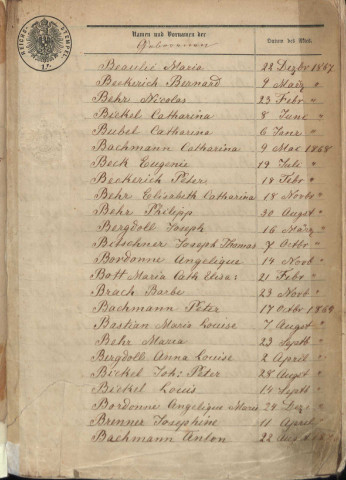 REICHS STEMPEL
Namen und Vornamen der
Geborenen
Datum des Akts.
Beaulié Maria 22 Dezbr 1867
Beckerich Bernard 9 Maiz "
Behr Nicolas 23 Febr "
Bickel Catharina 8 June "
Bubel Catharina 6 Janr "
Bachmann Catharina 9 Mai 1868
Beck Eugenie 19 Juli "
Beckerich Peter 18 Febr "
Behr Elizabeth Catharina 18 Novbr "
Behr Philipp 30 Augst "
Bergdoll Joseph 16 März "
Betschner Joseph Thomas 7 Octbr "
Bordonne Angelique 14 Novb "
Bott Maria Cath Elisa: 21 Febr "
Brach Barbe 23 Novb "
Bachmann Peter 17 Octbr 1869
Bastian Marie Louise 7 Augst "
Behr Maria 23 Septb "
Bergdoll Anna Louise 2 April "
Bickel Joh: Peter 28 Augst "
Bickel Louis 14 Septb "
Bordonne Angelique Marie 24 Dez: "
Brenner Josephine 11 April "
Bachmann Anton 22 Aug